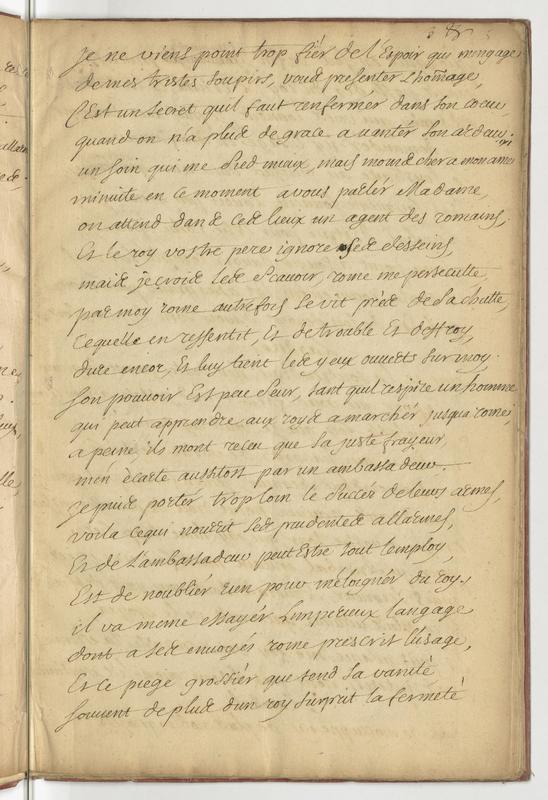 Je ne viens point trop fiér de l'Espoir qui m'engage
de mes tristes soupirs, vous presenter L'homage,
C'Est un secret quil faut renfermér dans son coeur,
quand on n'a plus de grace a vantér son ardeur.
un soin qui me sied mieux, mais moins cher a mon ame
m'inuite en ce moment a vous parlér Madame,
on attend dans ces lieux un agent des romains,
Et le roy vostre pere ignore ses desseins,
mais je crois les scavoir, rome me persecutte,
par moy rome autrefois se vit près de sa chutte,
ce quelle en ressentit, Et de trouble Et d'effroy,
dure encor, Et luy tient les yeux ouverts sur moy.
son pouvoir Est peu seur, tant quil respire un homme
qui peut apprendre aux roys a marchér jusqua rome,
a peine ils mont receu que sa juste frayeur,
m'en ècarte aussitost par un ambassadeur.
je puis portér trop loin le succés de leurs armes,
voila ce qui nourrit ses prudentes allarmes,
Et de L'ambassadeur peut Estre tout lemploy,
Est de noubliér rien pour m'éloignér du roy,
il va meme essayér L'imperieux langage
dont a ses envoyés rome prescrit l'usage,
Et ce piege grossiér que tend sa vanité
souvent de plus dun roy surprit la fermeté